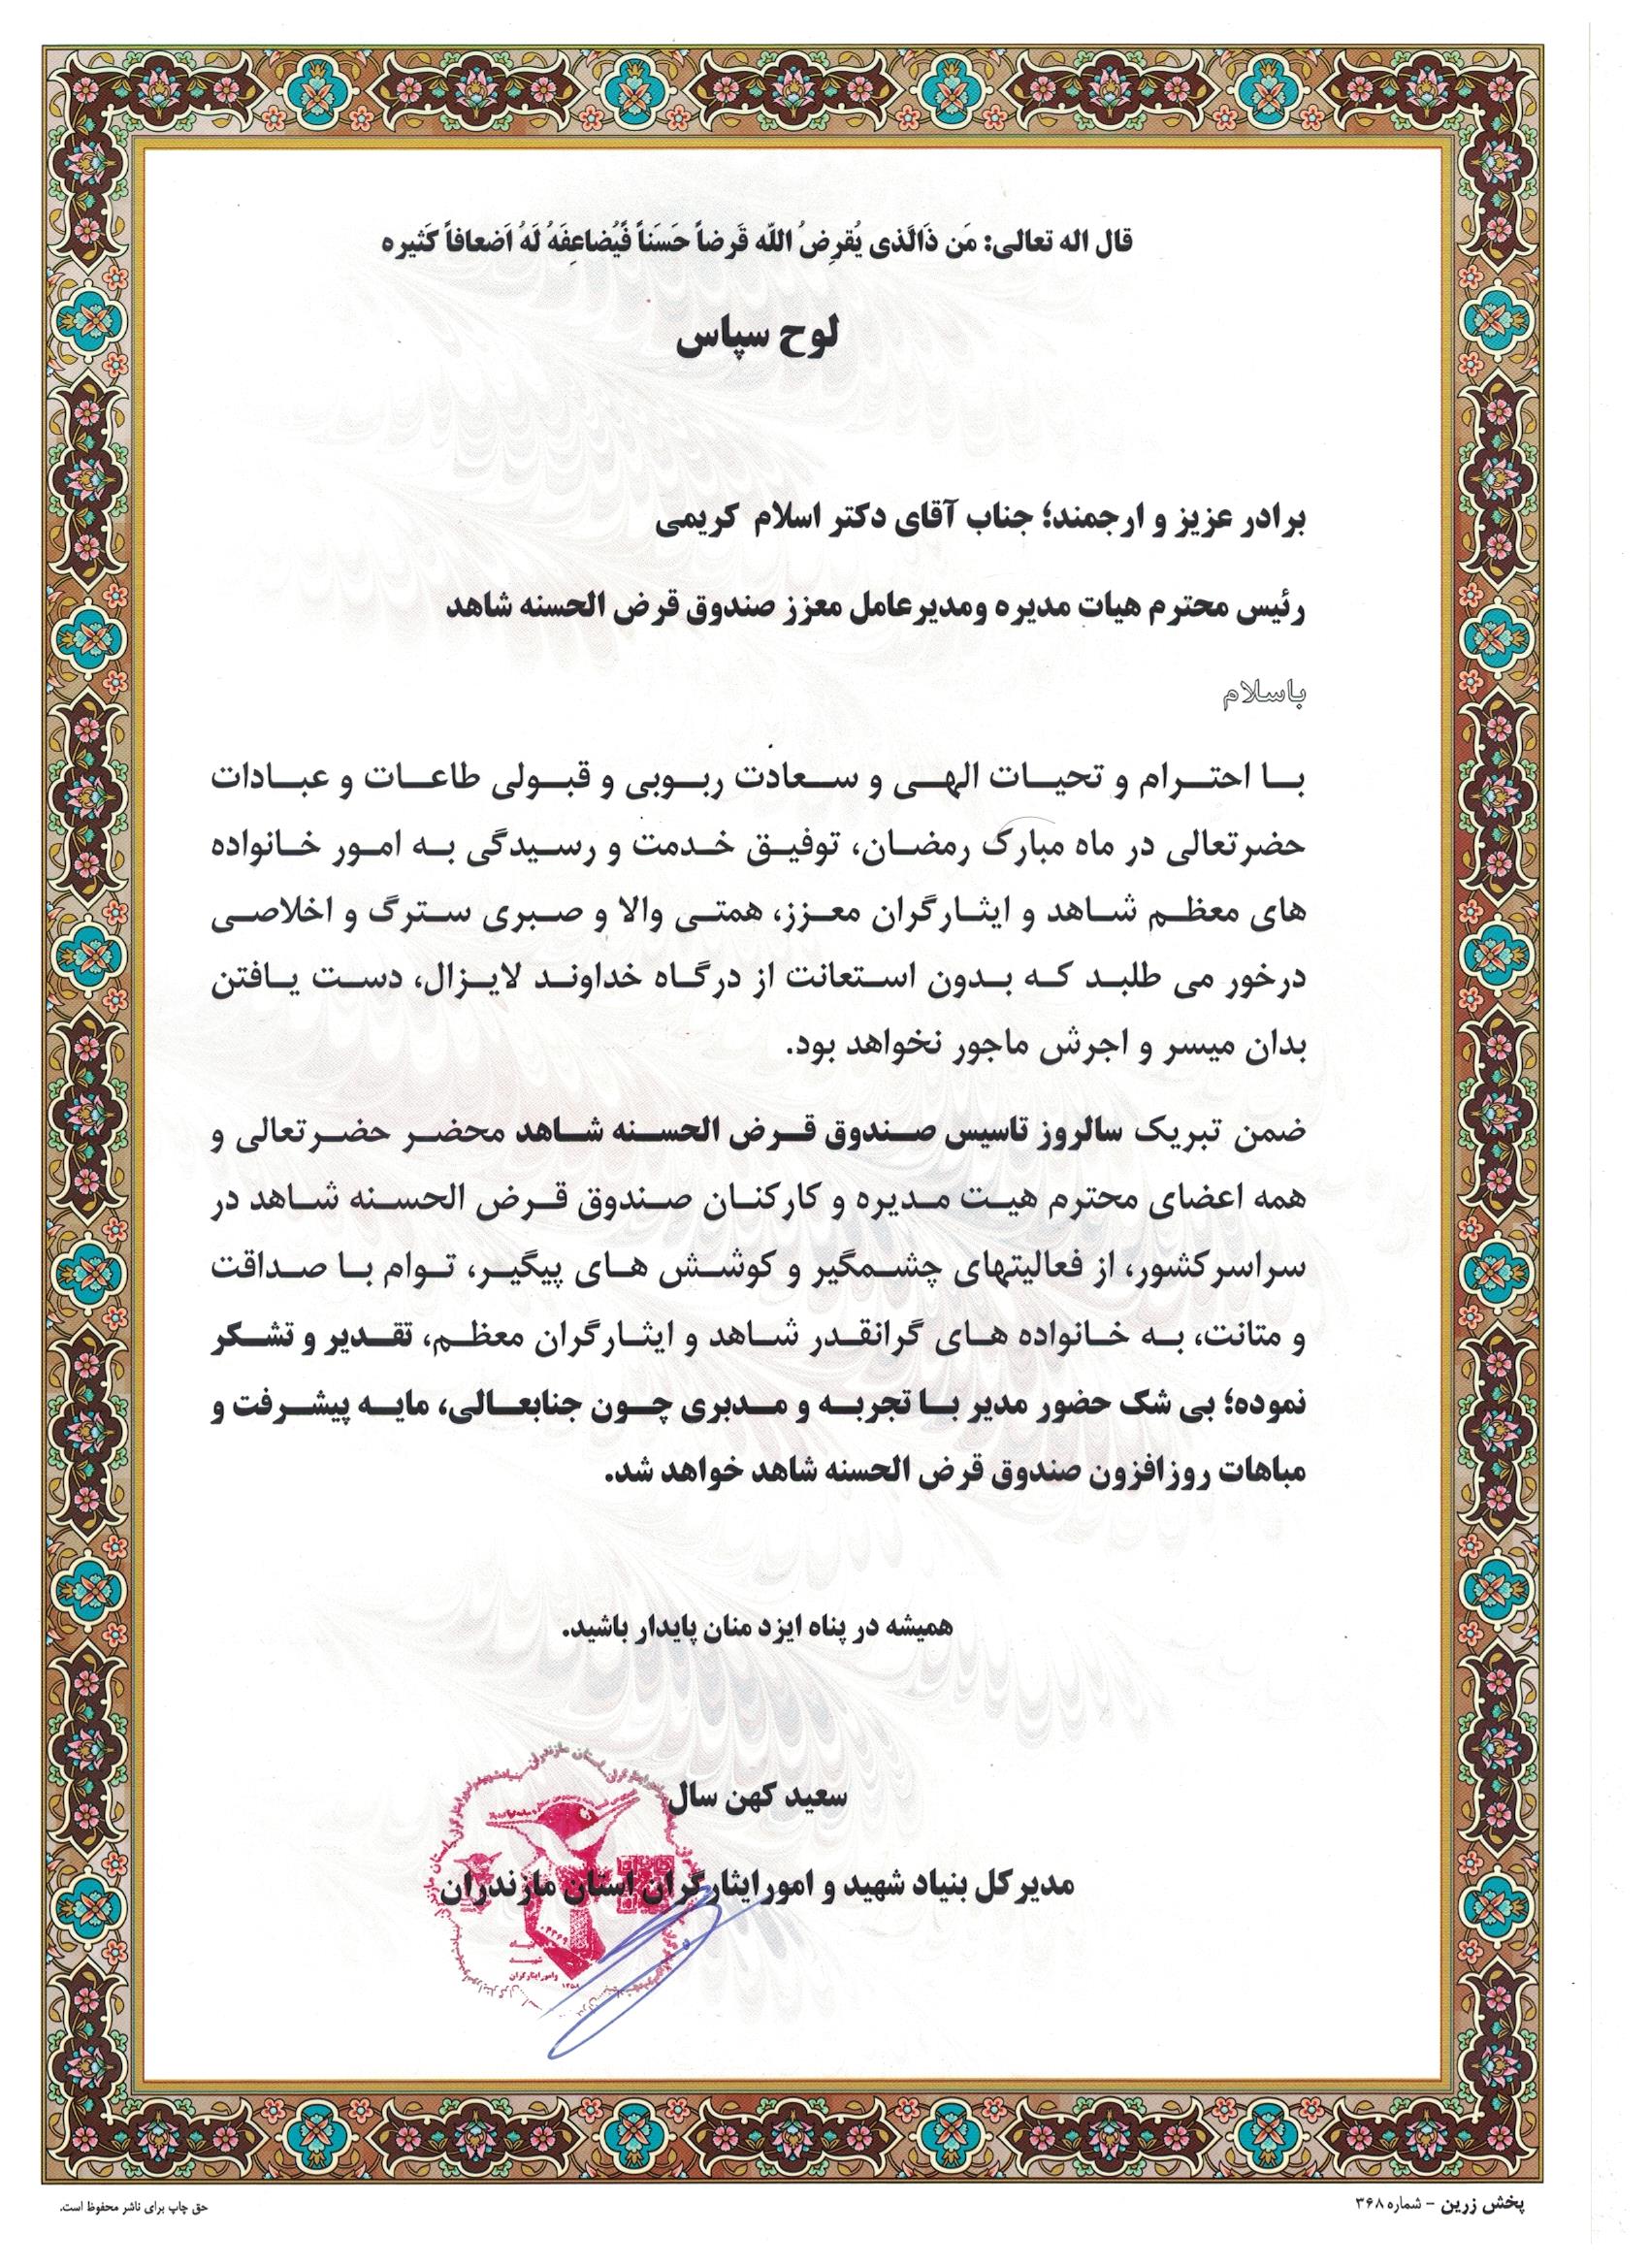 قال اله تعالی: مَن ذَالَّذی یُقرِضُ اللّه قَرضاً حَسَناً فَیُضاعِفَهُ لَهُ اَضعافاً کَثیره
لوح سپاس
برادر عزیز و ارجمند؛ جناب آقای دکتر اسلام کریمی
رئیس محترم هیات مدیره ومدیرعامل معزز صندوق قرض الحسنه شاهد
باسلام
بـا احتـرام و تحیـات الهـی و سـعادت ربـوبی و قبـولی طاعـات و عبـادات
حضرتعالی در ماه مبارک رمضـان، توفیـق خـدمت و رسـیدگی بـه امـور خـانواده
های معظـم شـاهد و ایثـارگران معـزز، همتـی والا و صـبری سـترگ و اخلاصـی
درخور می طلبـد کـه بـدون اسـتعانت از درگـاه خداونـد لایـزال، دسـت یـافتن
بدان میسر و اجرش ماجور نخواهد بود.
ضمن تبریک سالروز تاسیس صـندوق قـرض الحسـنه شـاهد محضـر حضـرتعالی و
همه اعضای محترم هیـت مـدیره و کارکنـان صـندوق قـرض الحسـنه شـاهد در
سراسرکشور، از فعالیتهای چشـمگیر و کوشـش هـای پیگیـر، تـوام بـا صـداقت
و متانت، بـه خـانواده هـای گرانقـدر شـاهد و ایثـارگران معظـم، تقـدیر و تشـکر
نموده؛ بی شک حضور مدیر بـا تجربـه و مـدبری چـون جنابعـالی، مایـه پیشـرفت و
مباهات روزافزون صندوق قرض الحسنه شاهد خواهد شد.
همیشه در پناه ایزد منان پایدار باشید.
سعید کهن سال
مدیرکل بنیاد شهید و امورایثارگران استان مازندران
وامور ایثارگران
۱۳۵۸
پخش زرین - شماره ۳۶۸
حق چاپ برای ناشر محفوظ است.